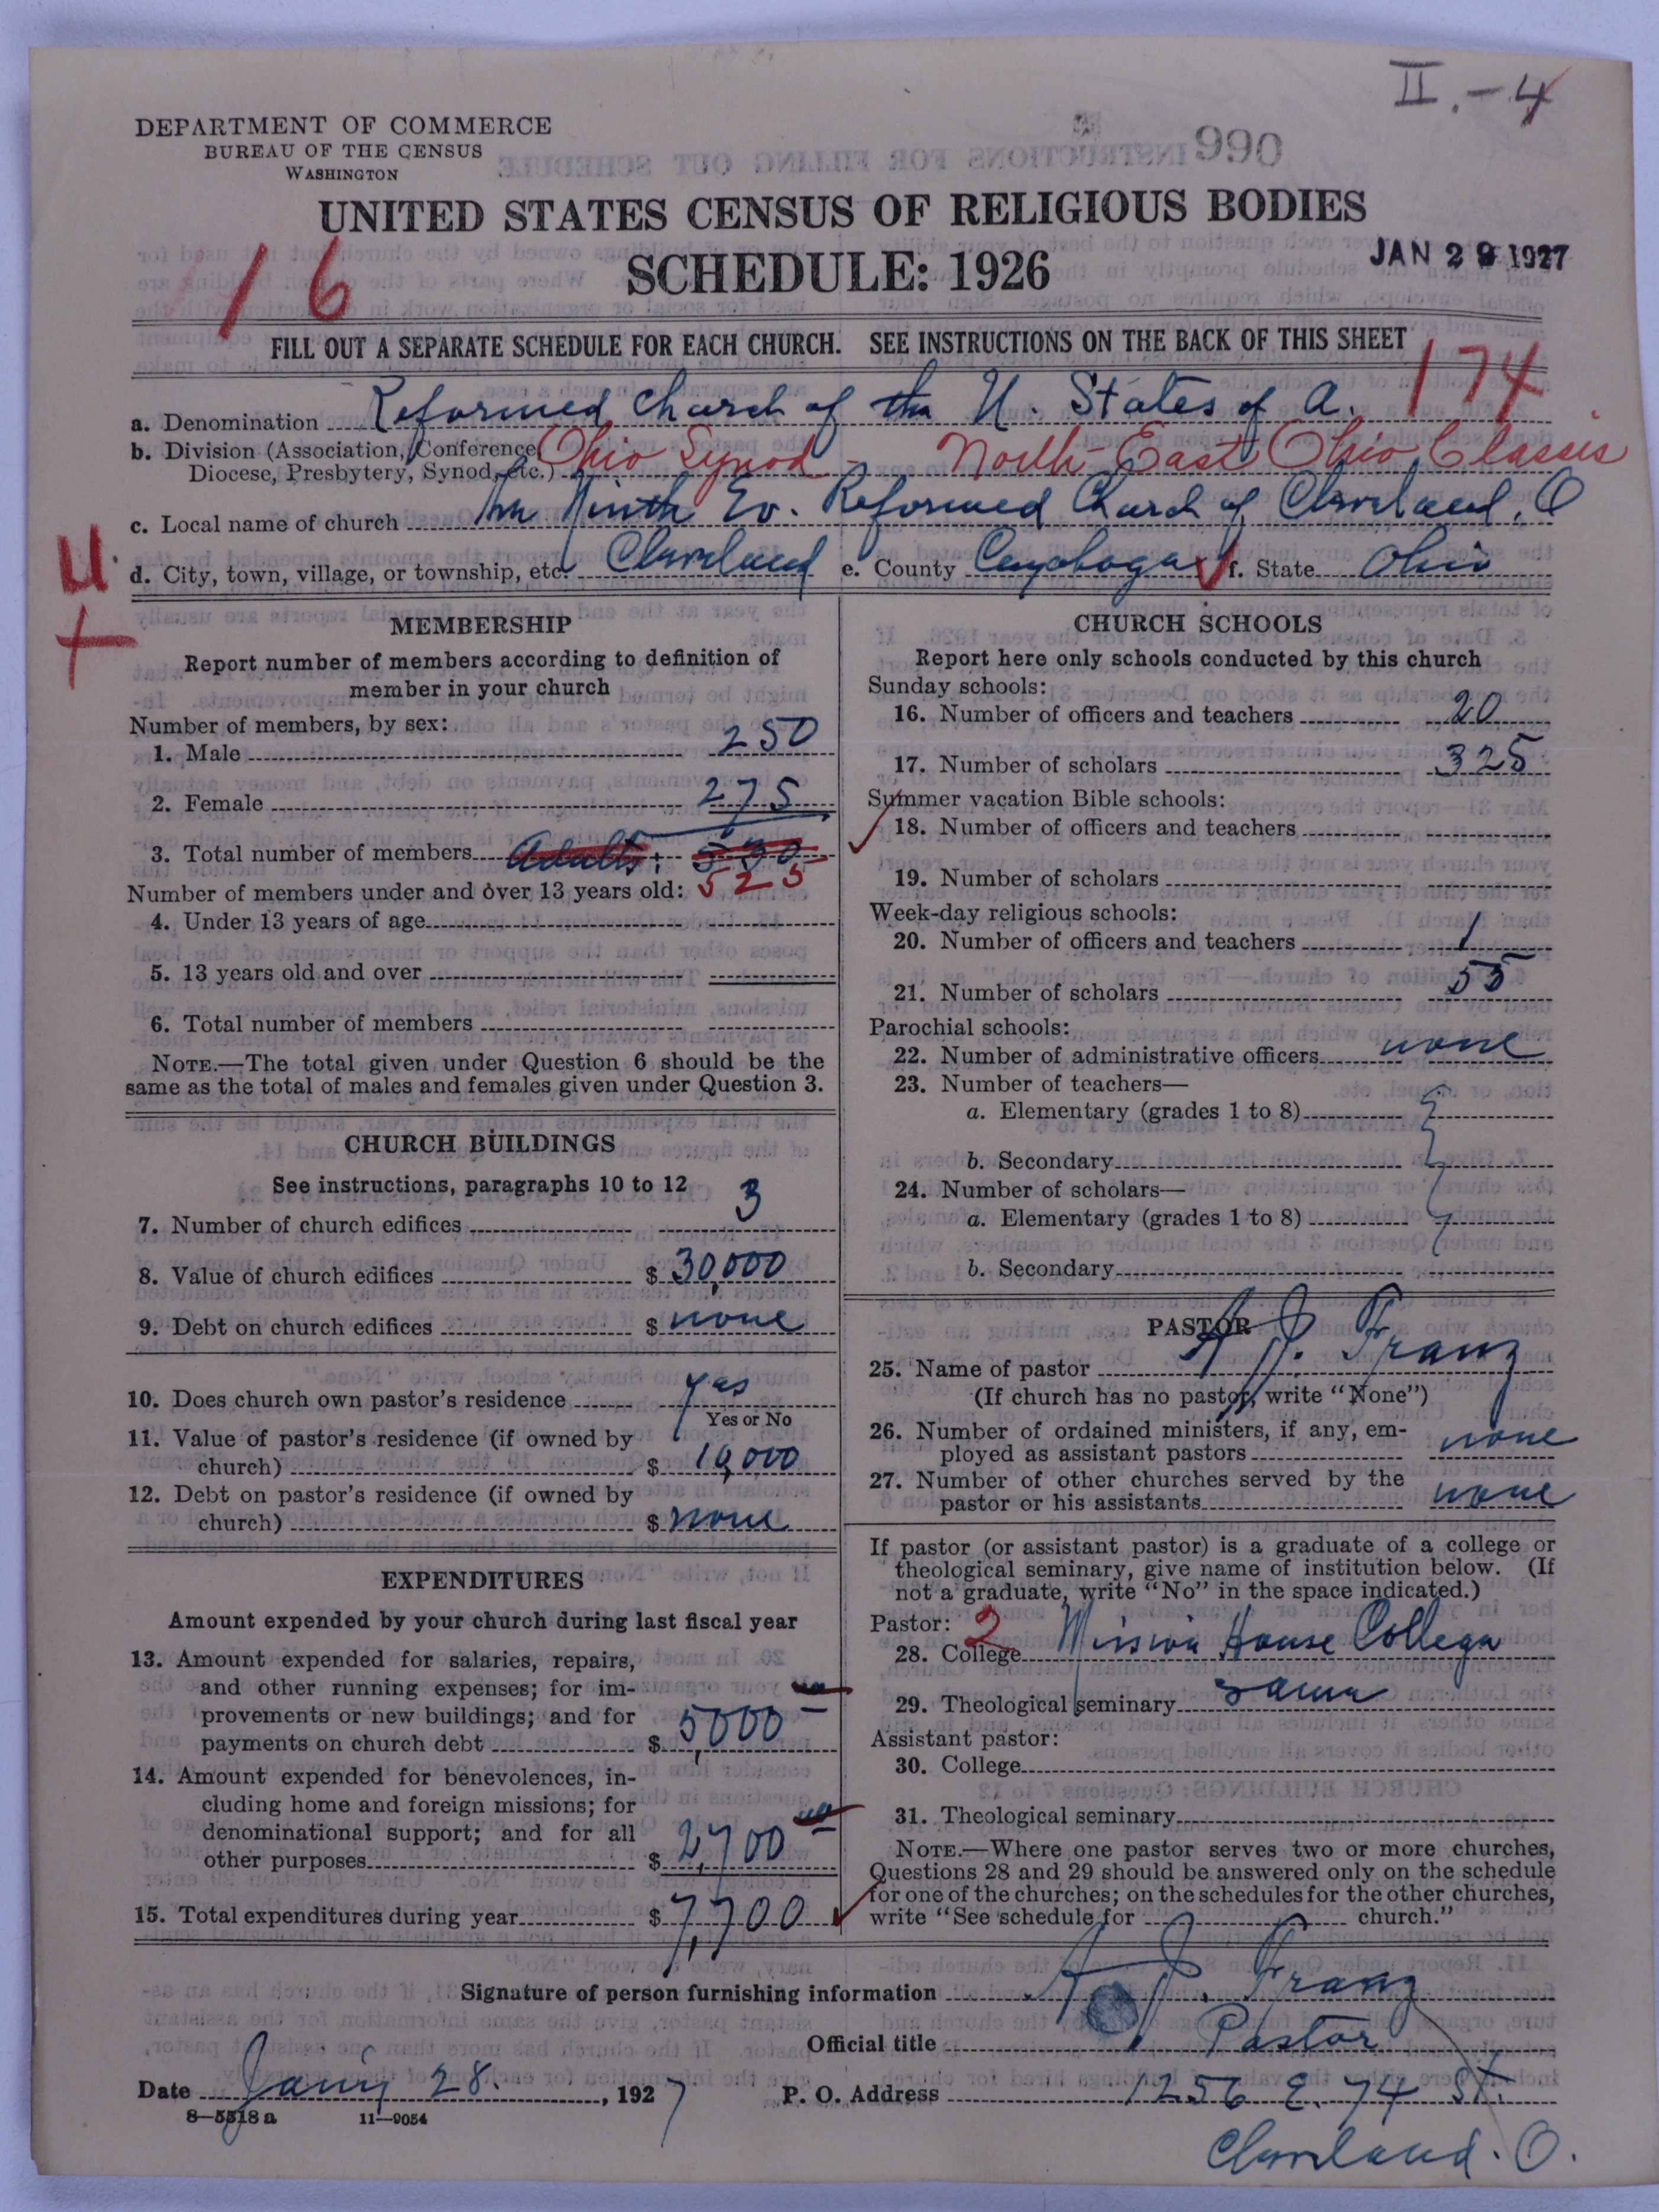 II.-4
DEPARTMENT OF COMMERCE
BUREAU OF THE CENSUS
WASHINGTON
990
UNITED STATES CENSUS OF RELIGIOUS BODIES
SCHEDULE: 1926
JAN 29 1927
16
FILL OUT A SEPARATE SCHEDULE FOR EACH CHURCH. SEE INSTRUCTIONS ON THE BACK OF THIS SHEET
174
a. Denomination Reformed Church of the U. States of A.
b. Division (Association, Conference, Diocese, Presbytery, Synod, etc.) Ohio Synod - North-East Ohio Classis
c. Local name of church Ninth Ev. Reformed Church of Cleveland, O
U.
d. City, town, village, or township, etc. Cleveland e. County Cuyahoga f. State Ohio
MEMBERSHIP
Report number of members according to definition of
member in your church
Number of members, by sex:
1. Male 250
2. Female 275
3. Total number of members Adults: 530
525
Number of members under and over 13 years old:
4. Under 13 years of age
5. 13 years old and over
6. Total number of members
NOTE.—The total given under Question 6 should be the
same as the total of males and females given under Question 3.
CHURCH BUILDINGS
See instructions, paragraphs 10 to 12
7. Number of church edifices 3
8. Value of church edifices $ 30,000
9. Debt on church edifices $ none
10. Does church own pastor's residence yes
Yes or No
11. Value of pastor's residence (if owned by
church) $ 10,000
12. Debt on pastor's residence (if owned by
church) $ none
EXPENDITURES
Amount expended by your church during last fiscal year
13. Amount expended for salaries, repairs,
and other running expenses; for im-
provements or new buildings; and for
payments on church debt $ 5,000
14. Amount expended for benevolences, in-
cluding home and foreign missions; for
denominational support; and for all
other purposes $ 2,700
15. Total expenditures during year $ 7,700
CHURCH SCHOOLS
Report here only schools conducted by this church
Sunday schools:
16. Number of officers and teachers 20
17. Number of scholars 325
Summer vacation Bible schools:
18. Number of officers and teachers
19. Number of scholars
Week-day religious schools:
20. Number of officers and teachers 1
21. Number of scholars 55
Parochial schools:
22. Number of administrative officers none
23. Number of teachers—
a. Elementary (grades 1 to 8)
b. Secondary
24. Number of scholars—
a. Elementary (grades 1 to 8)
b. Secondary
PASTOR
25. Name of pastor A J. Franz
(If church has no pastor, write "None")
26. Number of ordained ministers, if any, em-
ployed as assistant pastors none
27. Number of other churches served by the
pastor or his assistants none
If pastor (or assistant pastor) is a graduate of a college or
theological seminary, give name of institution below. (If
not a graduate, write "No" in the space indicated.)
Pastor:
28. College 2 Mission House College
29. Theological seminary same
Assistant pastor:
30. College
31. Theological seminary
NOTE.—Where one pastor serves two or more churches,
Questions 28 and 29 should be answered only on the schedule
for one of the churches; on the schedules for the other churches,
write "See schedule for church."
Signature of person furnishing information A J. Franz
Official title Pastor
Date 28. , 1927 P. O. Address 1256 E. 74 St.
8—5518 a 11—9054
Cleveland. O.